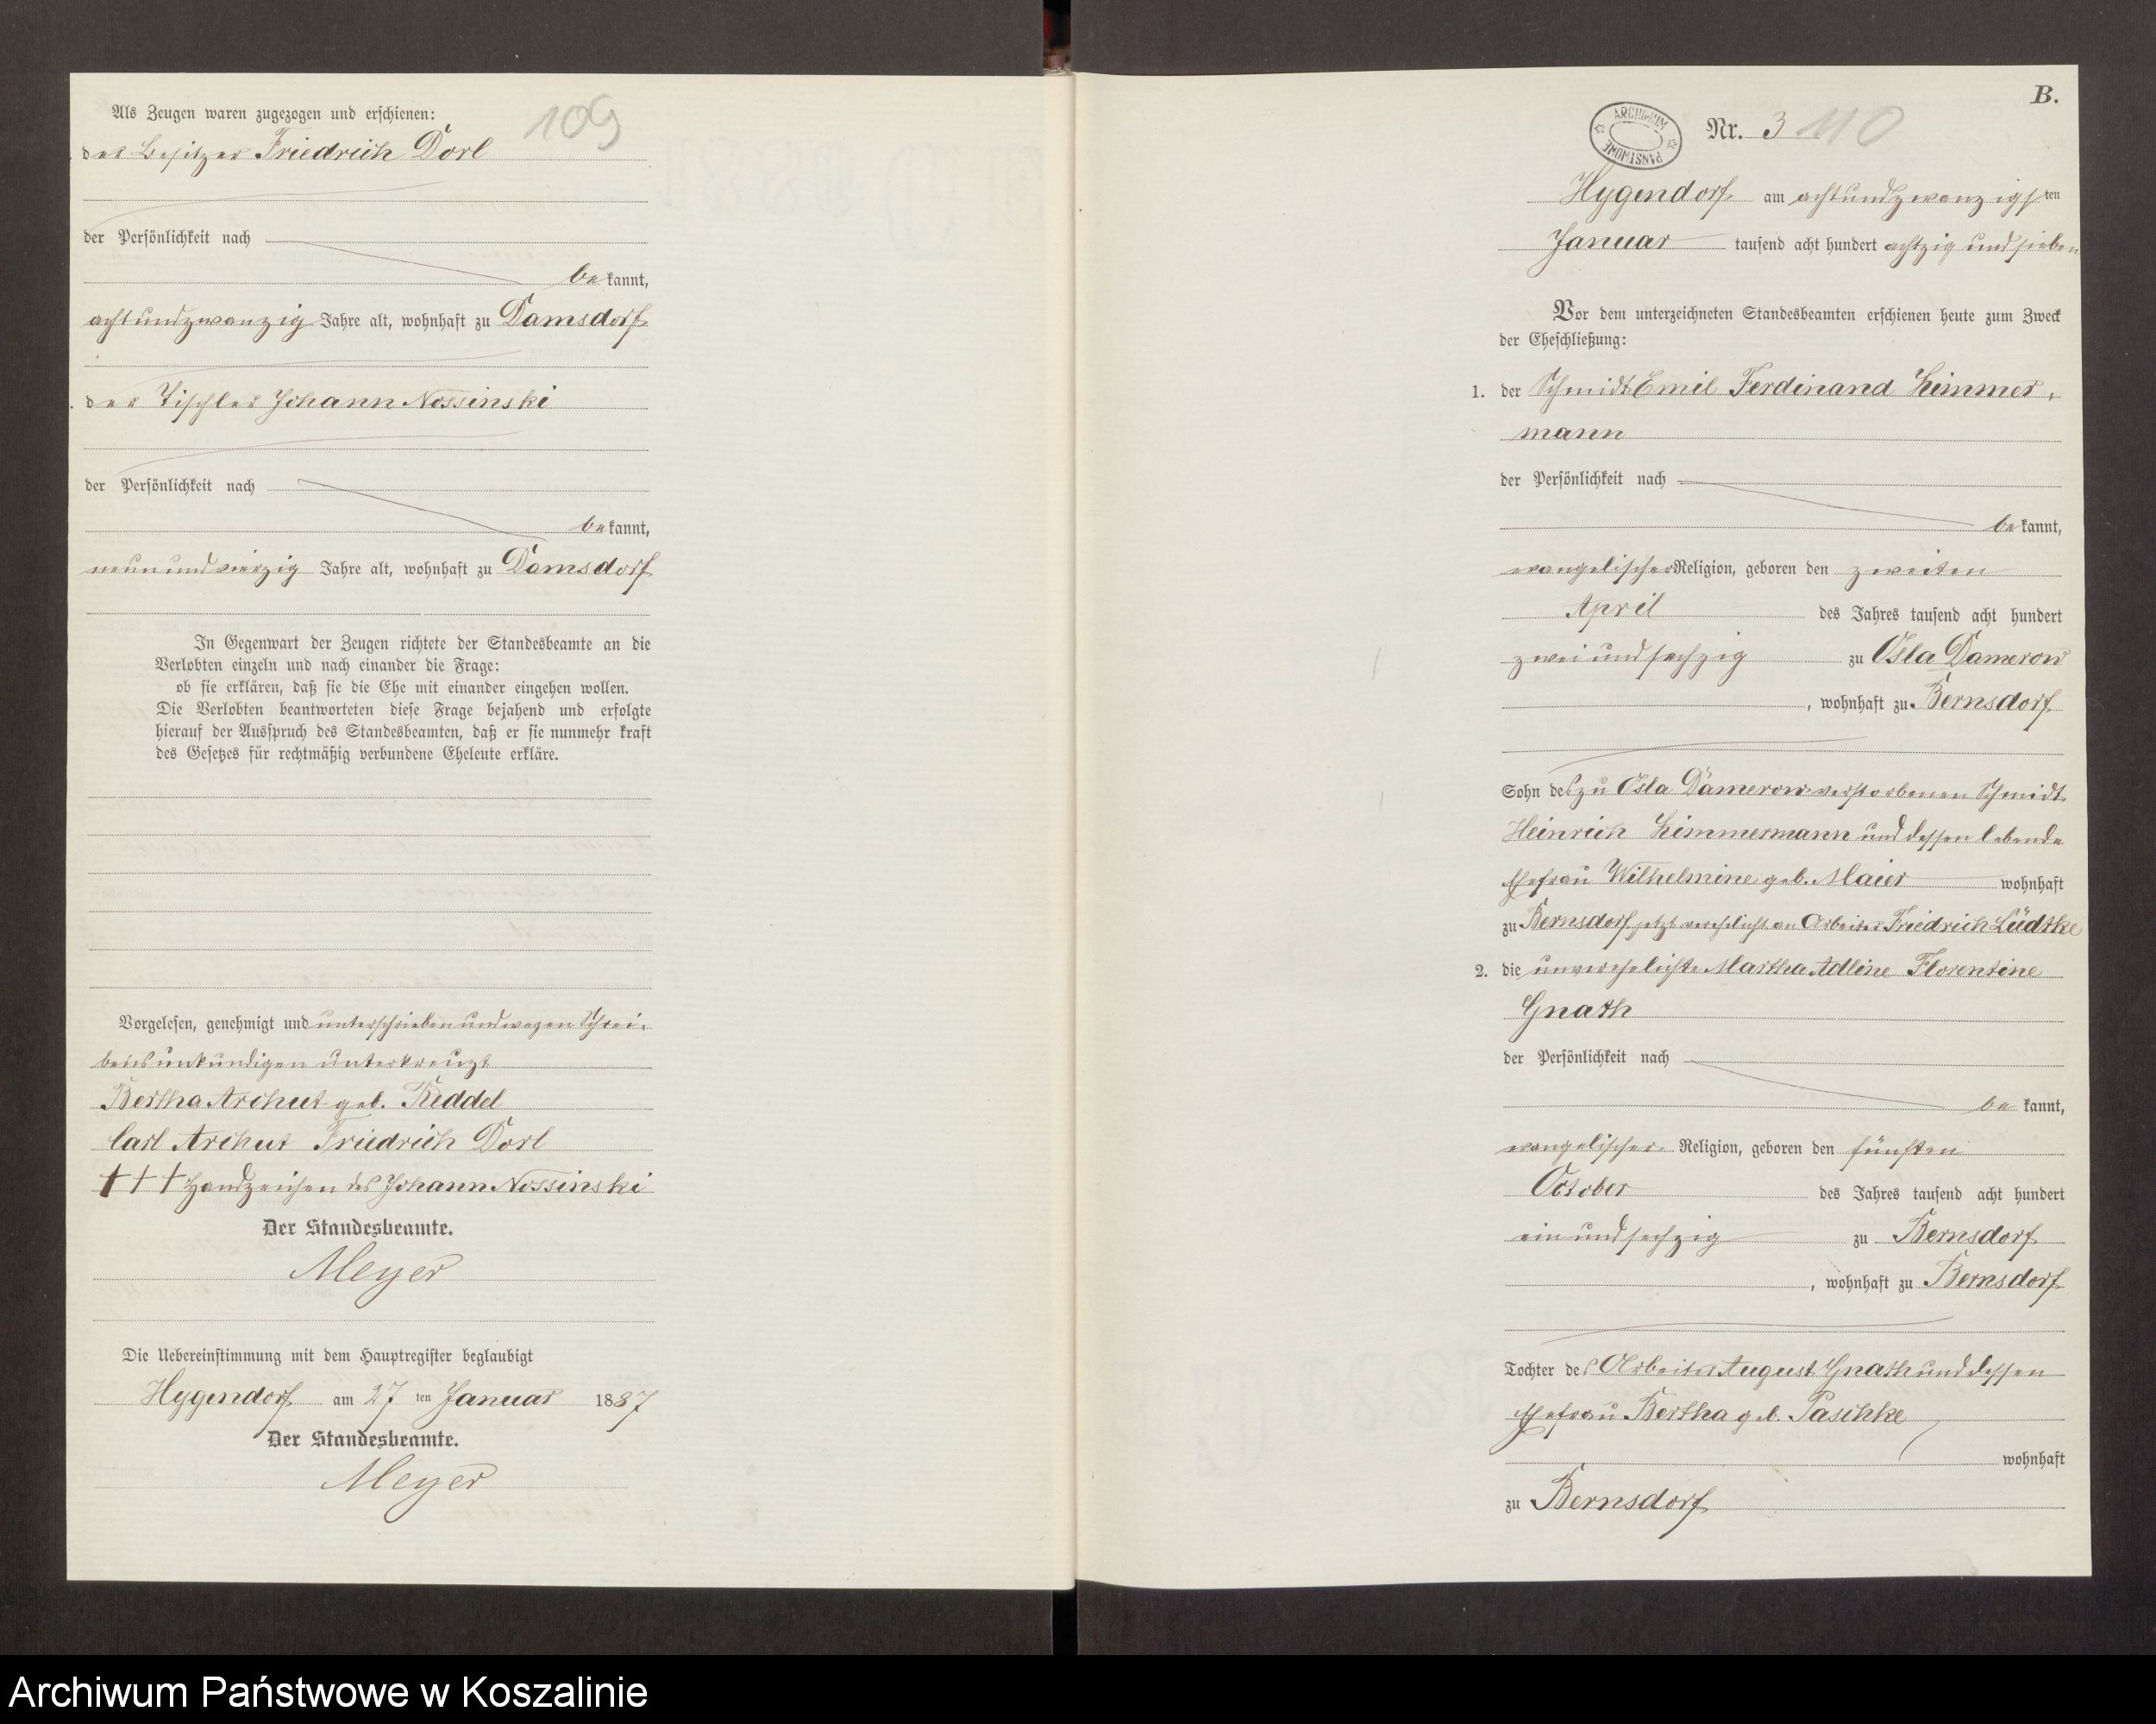 Als Zeugen waren zugezogen und erschienen:
109
der Besitzer Friedrich Dorl
der Persönlichkeit nach
be kannt,
achtundzwanzig Jahre alt, wohnhaft zu Damsdorf
der Tischler Johann Nossinski
der Persönlichkeit nach
be kannt,
neunundvierzig Jahre alt, wohnhaft zu Damsdorf
In Gegenwart der Zeugen richtete der Standesbeamte an die
Verlobten einzeln und nach einander die Frage:
ob sie erklären, daß sie die Ehe mit einander eingehen wollen.
Die Verlobten beantworteten diese Frage bejahend und erfolgte
hierauf der Ausspruch des Standesbeamten, daß er sie nunmehr kraft
des Gesetzes für rechtmäßig verbundene Eheleute erkläre.
Vorgelesen, genehmigt und unterschrieben und wegen Schrei-
bensunkundigen unterkreuzt
Bertha Archut geb. Reddel
Carl Archut Friedrich Dorl
+++ Handzeichen des Johann Nossinski
Der Standesbeamte.
Meyer
Die Uebereinstimmung mit dem Hauptregister beglaubigt
Hygendorf am 27 ten Januar 1887
Der Standesbeamte.
Meyer
B.
ARCHIWUM PAŃSTWOWE
Nr. 3 110
Hygendorf am achtundzwanzigsten
Januar tausend acht hundert achtzig und sieben
Vor dem unterzeichneten Standesbeamten erschienen heute zum Zweck
der Eheschließung:
1. der Schmidt Emil Ferdinand Zimmer-
mann
der Persönlichkeit nach
be kannt,
evangelischer Religion, geboren den zweiten
April des Jahres tausend acht hundert
zwei und sechzig zu Osla Damerow
, wohnhaft zu Bernsdorf
Sohn des zu Osla Damerow verstorbenen Schmidt
Heinrich Zimmermann und dessen lebende
Ehefrau Wilhelmine geb. Maier wohnhaft
zu Bernsdorf jetzt verehelicht an Arbeiter Friedrich Lüdtke
2. die unverehelichte Martha Adline Florentine
Gnath
der Persönlichkeit nach
be kannt,
evangelischer Religion, geboren den fünften
October des Jahres tausend acht hundert
ein und sechzig zu Bernsdorf
, wohnhaft zu Bernsdorf
Tochter des Arbeiter August Gnath und dessen
Ehefrau Bertha geb. Paschke
wohnhaft
zu Bernsdorf
Archiwum Państwowe w Koszalinie